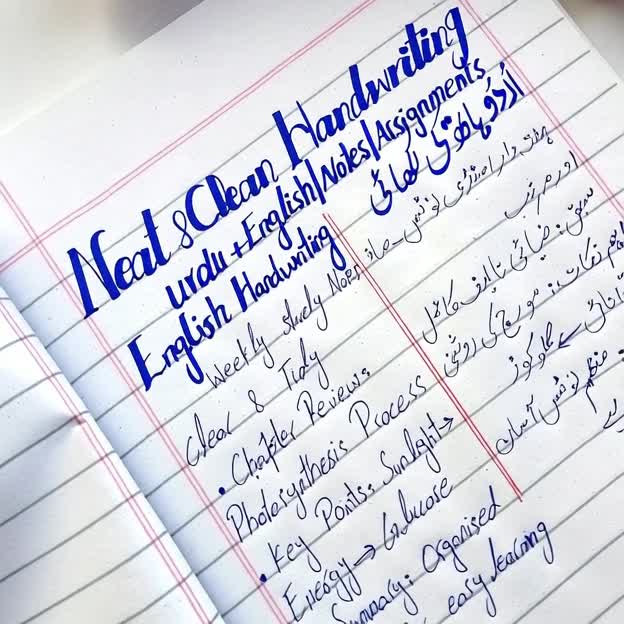 Neat & Clean Handwriting
Urdu + English/Notes/Assignments
English Handwriting
اُردُو ہاتھ کی لکھائی
Weekly Study Notes
Clear & Tidy
• Chapter Review:
Photosynthesis Process
• Key Points: Sunlight→
Energy → Glucose
Summary: Organised
easy learning
ہفتہ وار اسٹڈی نوٹس – صاف
اور مرتب
سبق: ضیائی تالیف کا عمل
اہم نکات: سورج کی روشنی
توانائی ← گلوکوز
منظم نوٹس آسان